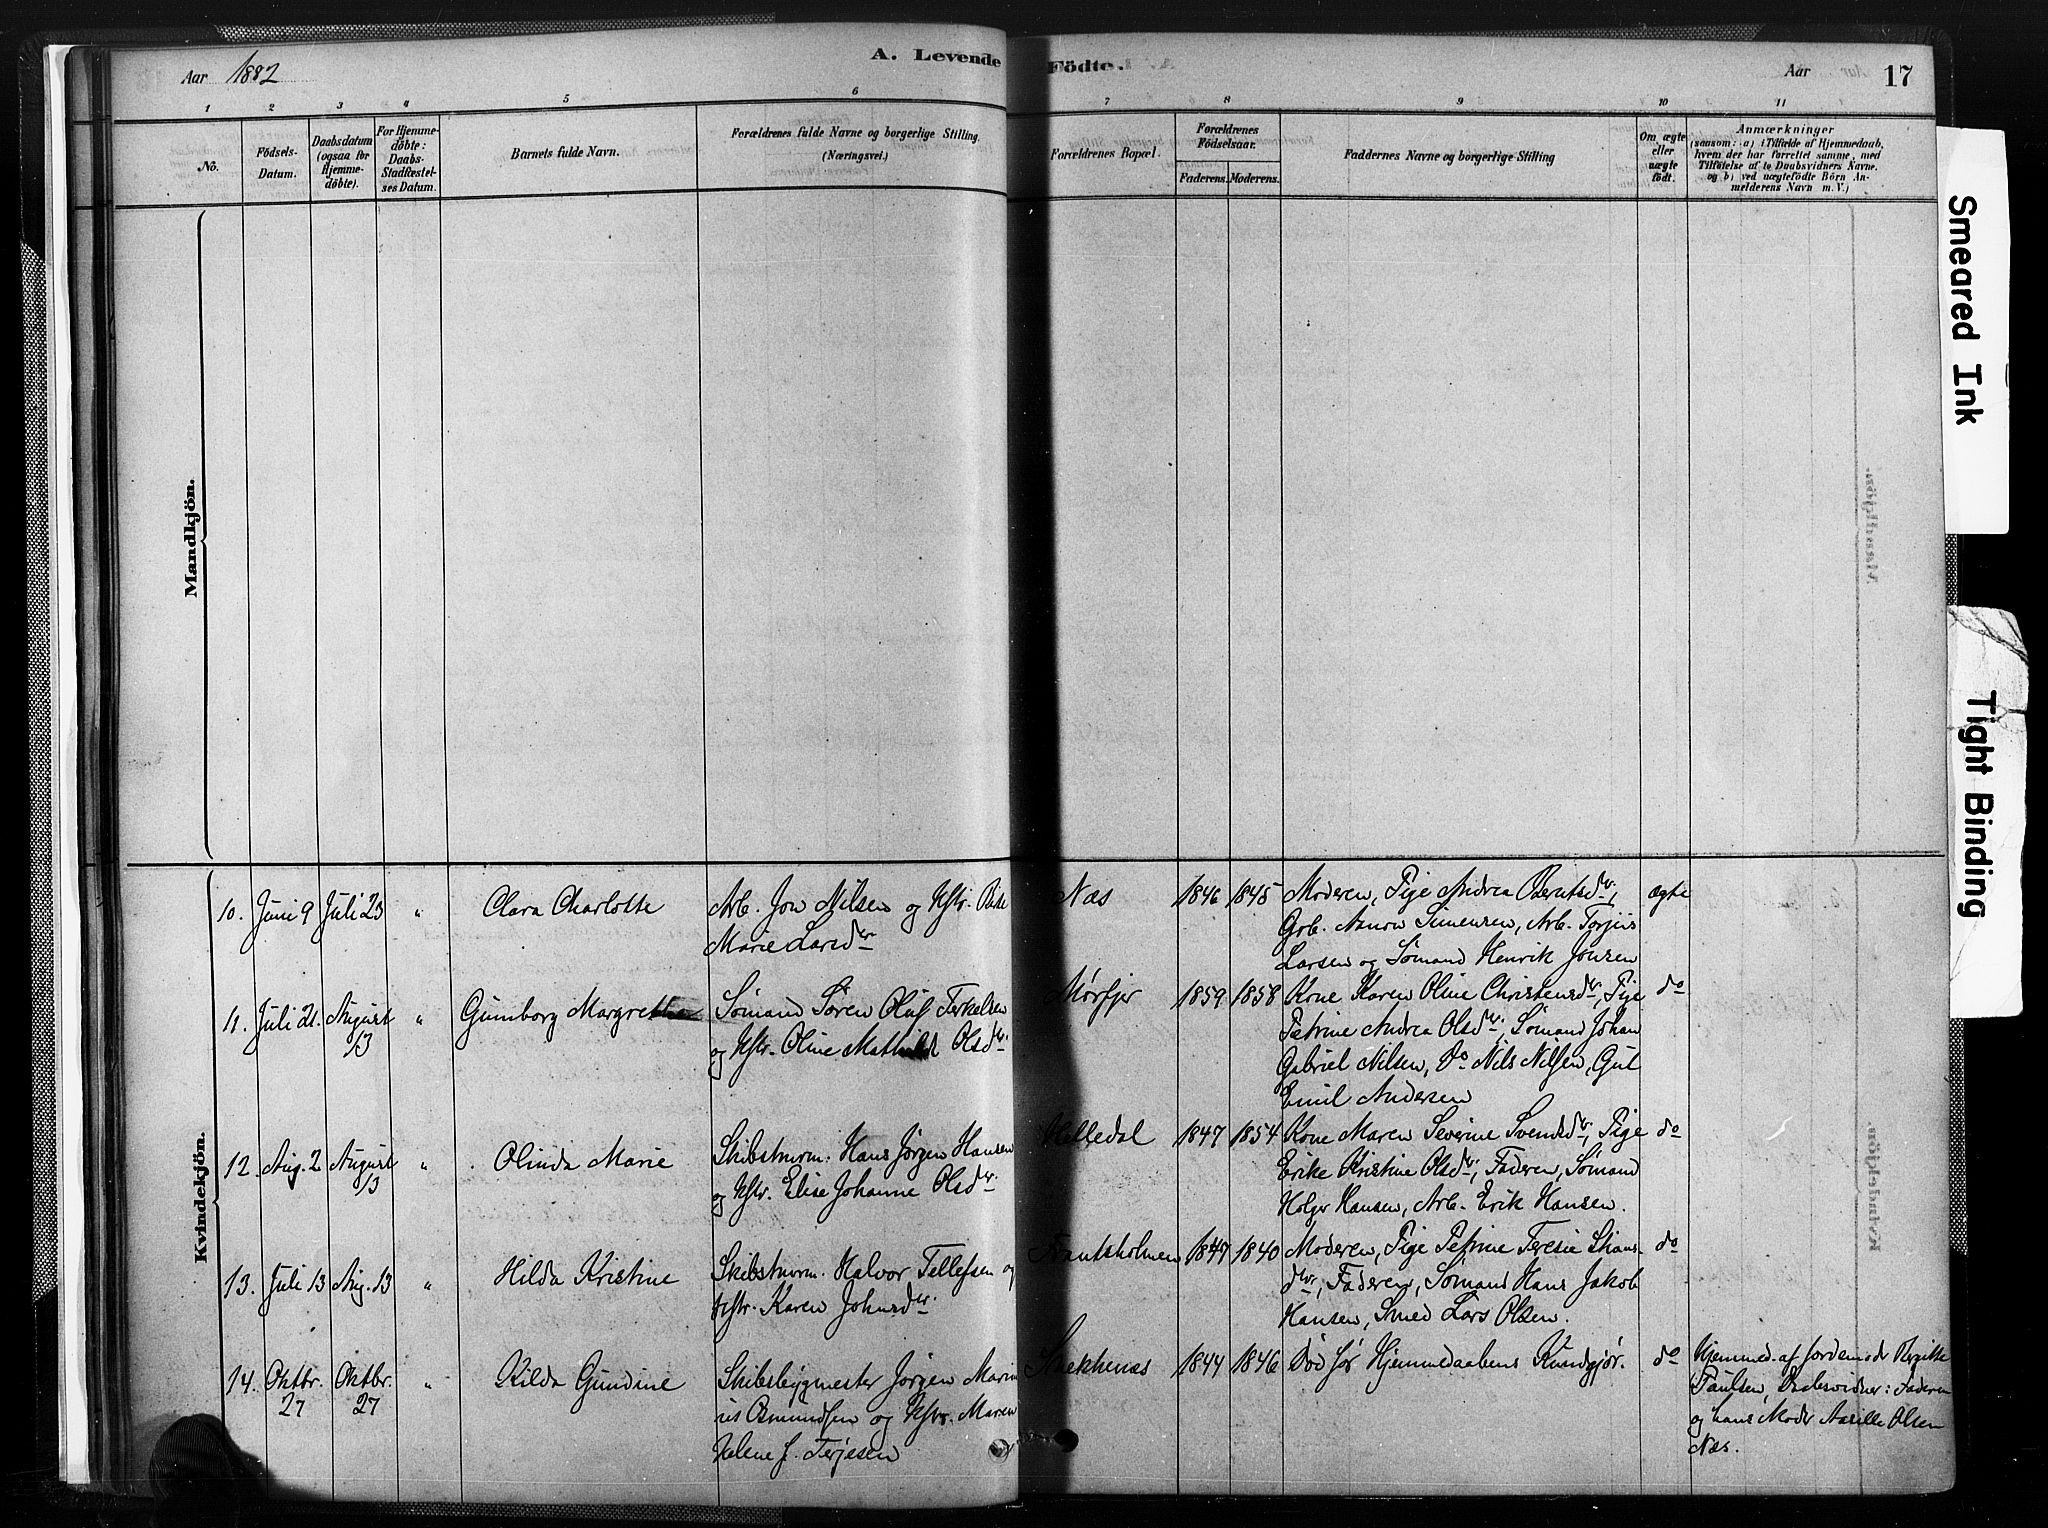 A. Levende Födte.
Aar 1882
Aar
17
1 2 3 4 5 6 7 8 9 10 11
No.
Födsels-Datum.
Daabsdatum (ogsaa for Hjemmedøbte).
For Hjemmedøbte: Daabs-Stadfæstelses Datum.
Barnets fulde Navn.
Forældrenes fulde Navne og borgerlige Stilling.
(Næringsvei.)
Forældrenes Bopæl.
Forældrenes Födselsaar.
Faderens. Moderens.
Faddernes Navne og borgerlige Stilling
Om ægte eller uægte födt.
Anmærkninger
(saasom: a) i Tilfælde af Hjemmedaab,
hvem der har forrettet samme, med
Tilföielse af to Daabsvidners Navne.
og b) ved uægtefödte Börn An-
melderens Navn m. V.)
Mandkjön.
Kvindekjön.
10. Juni 9 Juli 23 " Clara Charlotte
Arb. Jon Nilsen og Hstr.
Marie Larsdr
Næs 1846 1845
Moderen, Pige Andrea Berntsdr,
Simensen, Arb. Torjus
Larsen og Sømand Henrik Jonsen
ægte
11. Juli 21. August 13 " Gunborg Margrethe
Sømand Søren Oluf Terkelsen
og Hstr. Oline Mathilde Olsdr.
Mørfjer 1859 1858
Kone Karen Oline Christensdr, Pige
Petrine Andrea Olsdr, Sømand Johan
Gabriel Nilsen, Do Nils Nilsen, Gut
Emil Andersen
do
12. Aug. 2 August 13 " Olinda Marie
Skibstmrm. Hans Jørgen Hansen
og Hstr. Elise Johanne Olsdr.
Helledal 1847 1854
Kone Maren Severine Svendsdr, Pige
Erike Kristine Olsdr, Faderen, Sømand
Holger Hansen, Arb. Erik Hansen.
do
13. Juli 13 Aug. 13 " Hilda Kristine
Skibstmrm. Halvor Tellefsen og
Hstr. Karen Johnsdr.
Frantsholmen 1847 1840
Moderen, Pige Petrine Teresie
dr, Faderen, Sømand Hans Jakob
Hansen, Smed Lars Olsen.
do
14. Oktbr. 27 Oktbr. 27 " Hilda Gundine
Skibsbygmester Jørgen Marin
ius Osmundsen og Hstr. Maren
Helene J. Terjesen
1844 1846
Død før Hjemmedaabens Kundgjør.
do
Hjemmed. af Jordemodr
Paulsen, Daabsvidner: Faderen
og hans Moder Olsen
Næs.
Smeared Ink
Tight Binding